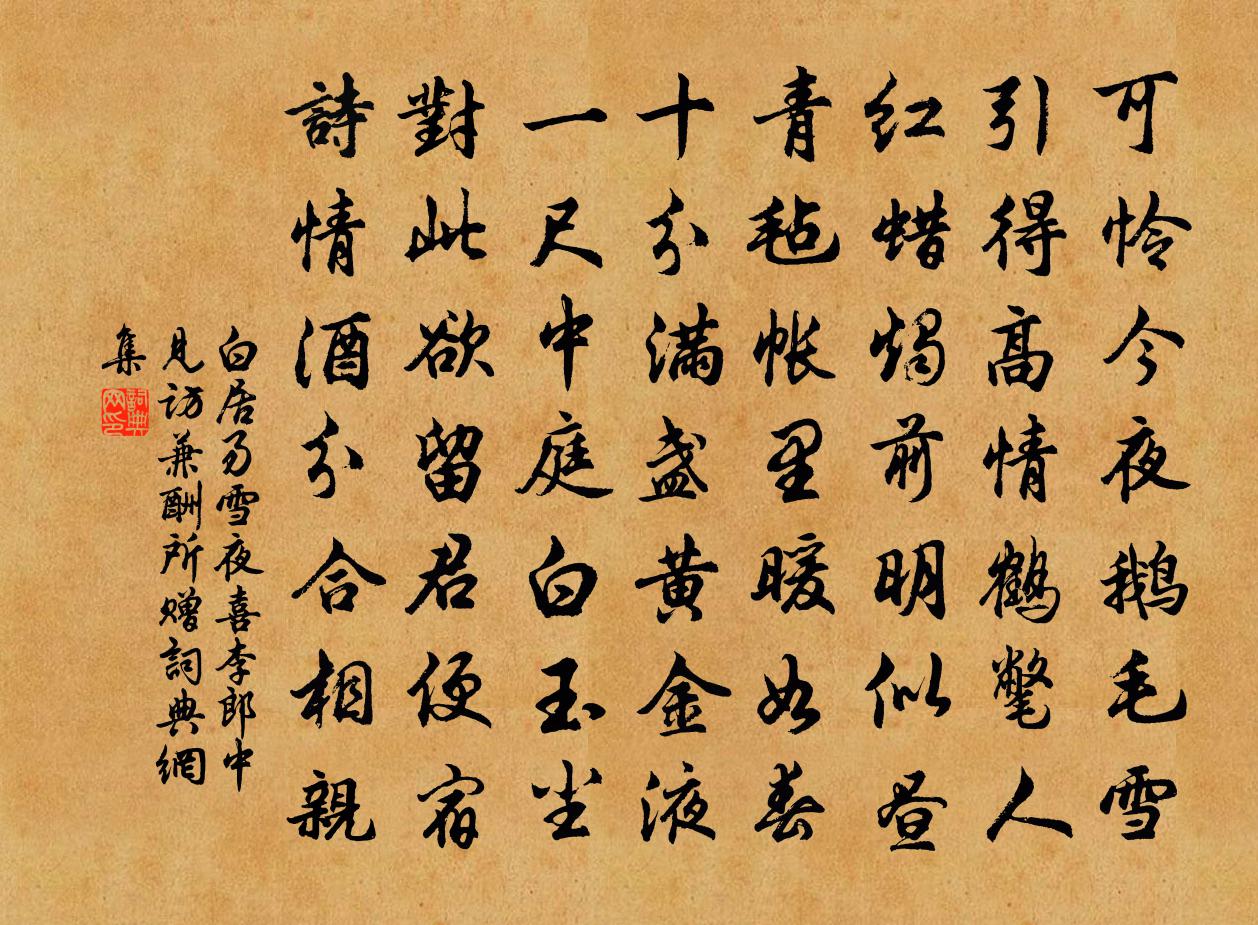 可怜今夜鹅毛雪
引得高情鶴氅人
红蜡燭前明似昼
青毡帐里暖如春
十分满盏黄金液
一尺中庭白玉尘
對此欲留君便宿
詩情酒分合相親
白居易雪夜喜李郎中
見访兼酬所赠詞典網
集
詞典
网印